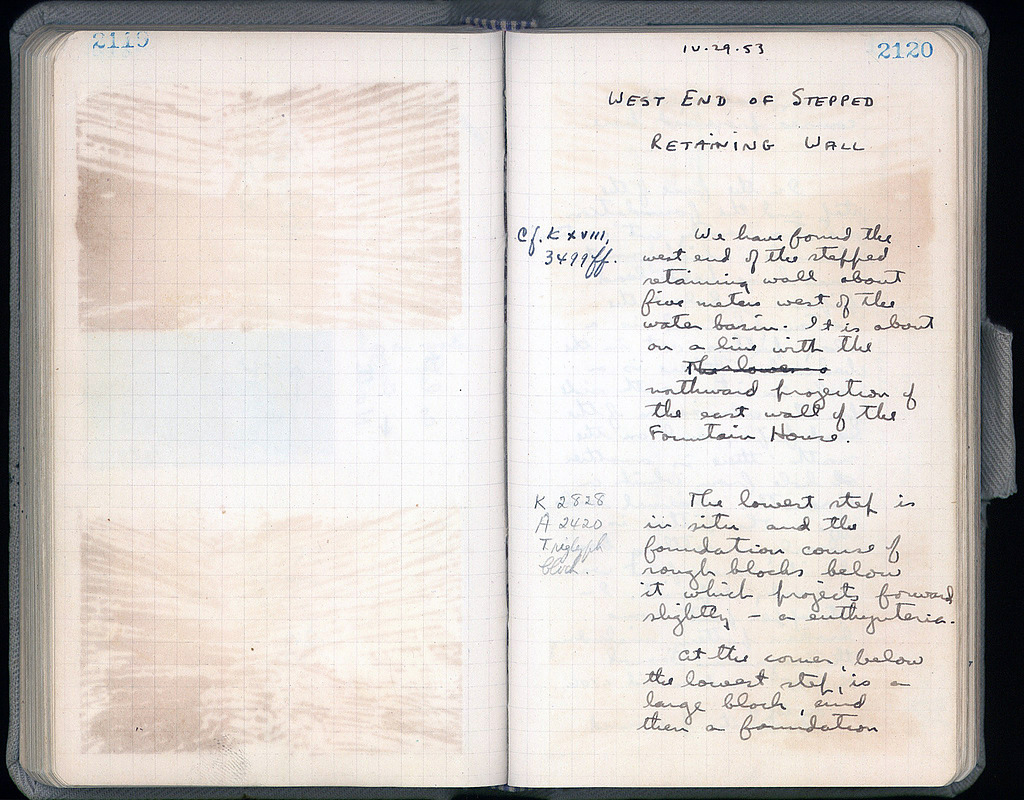 2119
2120
IV.29.53
WEST END OF STEPPED
RETAINING WALL
Cf. K XVIII,
3499ff.
We have found the
west end of the stepped
retaining wall about
five meters west of the
water basin. It is about
on a line with the
The lower
northward projection of
the east wall of the
Fountain House.
K 2828
A 2420
Triglyph
block.
The lowest step is
in situ and the
foundation course of
rough blocks below
it which projects forward
slightly – a euthynteria.
At the corner, below
the lowest step, is a
large block, and
then a foundation